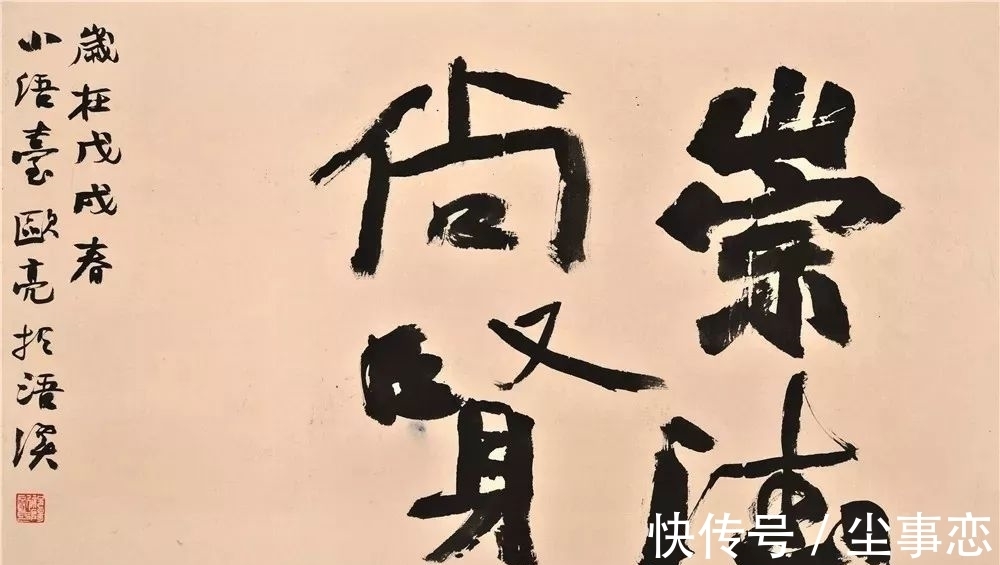 崇德
尚賢
歲在戊戌春
小浯臺歐亮於浯溪
快传号 / 尘事恋